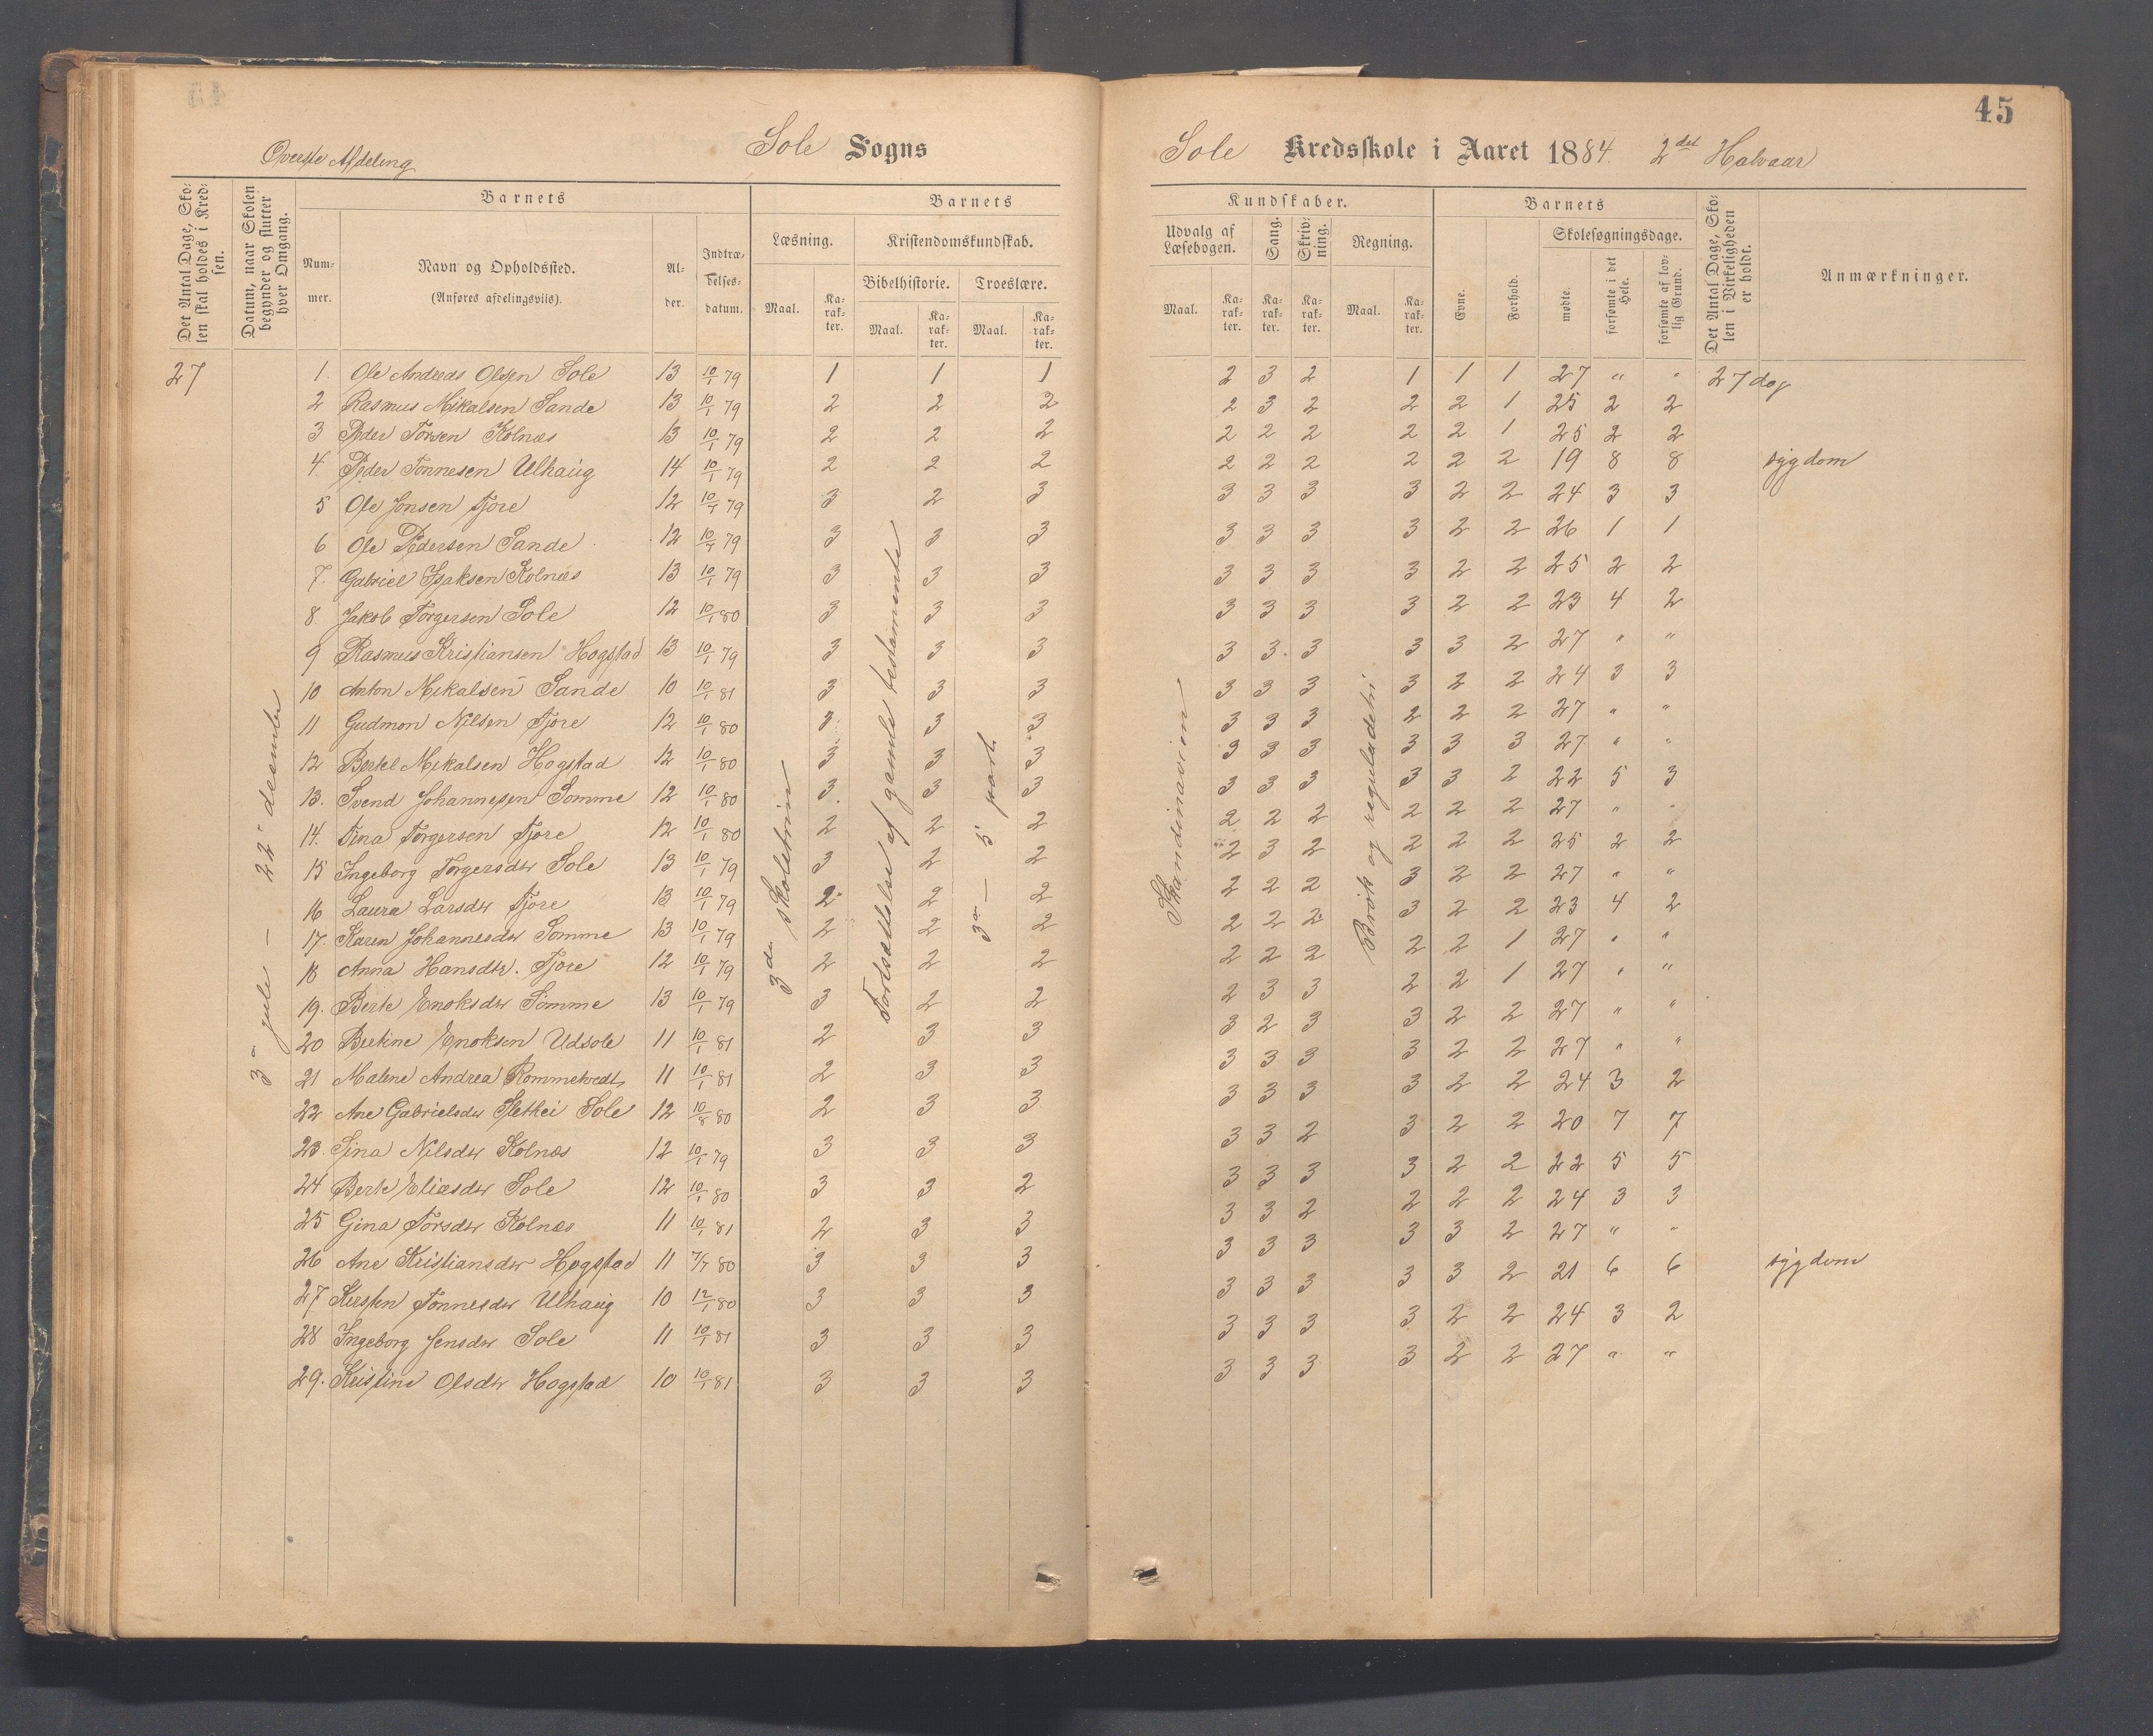 45
Øverste Afdeling
Sole Sogns
Sole Kredsskole i Aaret 1884. 2det Halvaar
Det Antal Dage, Skolen skal holdes i Kredsen.
Datum, naar Skolen begynder og slutter hver Omgang.
Barnets
Nummer.
Navn og Opholdssted.
(Anføres afdelingsviis).
Alder.
Indtrædelsesdatum.
Barnets
Kundskaber.
Læsning.
Maal.
Karakter.
Kristendomskundskab.
Bibelhistorie.
Maal.
Karakter.
Troeslære.
Maal.
Karakter.
Udvalg af Læsebogen.
Maal.
Karakter.
Sang.
Karakter.
Skrivning.
Karakter.
Regning.
Maal.
Karakter.
Barnets
Evne.
Forhold.
Skolesøgningsdage.
mødte.
forsømte i det Hele.
forsømte af lovlig Grund.
Det Antal Dage, Skolen i Virkeligheden er holdt.
Anmærkninger.
27
3 jule — 22 desember
3die Skoletrin
Fortsættelse af gamle testamente
3 — 5 part
Skandinavien
Brøk og reguladetri
1. Ole Andreas Olsen Sole 13 10/1 79 1 1 1 2 3 2 1 1 1 27 " " 27 dag
2 Rasmus Mikalsen Sande 13 10/1 79 2 2 2 2 3 2 2 2 1 25 2 2
3 Peder Torsen Kolnæs 13 10/1 79 2 2 2 2 2 2 2 2 1 25 2 2
4. Peder Tønnesen Ulhaug 14 10/1 79 2 2 2 2 2 2 2 2 2 19 8 8 sygdom
5 Ole Jonsen Tjore 12 10/1 79 3 2 3 3 3 3 3 2 2 24 3 3
6 Ole Pedersen Sande 12 10/1 79 3 3 3 3 3 3 3 2 2 26 1 1
7. Gabriel Isaksen Kolnæs 13 10/1 79 3 3 3 3 3 3 3 2 2 25 2 2
8. Jakob Torgersen Sole 12 10/1 80 3 3 3 3 3 3 3 2 2 23 4 2
9 Rasmus Kristiansen Hogstad 13 10/1 79 3 3 3 3 3 3 3 3 2 27 " "
10 Anton Mikalsen Sande 10 10/1 81 3 3 3 3 3 3 3 2 2 24 3 3
11 Gudmon Nilsen Tjore 12 10/1 80 3 3 3 3 3 3 2 2 2 27 " "
12 Bertel Mikalsen Hogstad 12 10/1 80 3 3 3 3 3 3 3 3 3 27 " "
13. Svend Johannesen Sømme 12 10/1 80 3 3 3 3 3 3 3 3 2 22 5 3
14. Tina Torgersen Tjore 12 10/1 80 2 2 2 2 2 2 2 2 2 27 " "
15 Ingeborg Torgersdtr Sole 13 10/1 79 3 2 2 2 3 2 2 2 2 25 2 2
16 Laura Larsdtr Tjore 13 10/1 79 2 2 2 2 2 2 3 2 2 27 " "
17. Karen Johannesdtr Sømme 13 10/1 79 2 2 2 2 2 2 3 2 2 23 4 2
18 Anna Hansdtr. Tjore 12 10/1 79 2 2 2 2 2 2 2 2 1 27 " "
19. Berte Enoksdtr Sømme 13 10/1 79 3 2 2 2 3 3 2 2 1 27 " "
20 Bertine Enoksen Udsole 11 10/1 81 2 3 3 3 2 3 3 2 2 27 " "
21 Malene Andrea Rommetvedt 11 10/1 81 2 3 3 3 3 3 3 2 2 27 " "
22 Ane Gabrielsdtr Slethei Sole 12 10/8 80 2 3 3 3 3 3 3 2 2 24 3 2
23. Sina Nilsdtr Kolnæs 12 10/1 79 3 3 3 3 3 2 3 2 2 20 7 7
24 Berte Eliasdtr Sole 12 10/1 80 3 3 2 3 3 3 3 2 2 22 5 5
25 Gina Torsdtr Kolnæs 11 10/1 81 2 3 3 3 3 2 2 2 2 24 3 3
26 Ane Kristiansdtr Hogstad 11 7/7 80 3 3 3 3 3 3 3 3 2 27 " "
27 Kirsten Tønnesdtr Ulhaug 10 12/1 80 3 3 3 3 3 3 3 3 2 21 6 6 sygdom
28 Ingeborg Jensdtr Sole 11 10/1 81 3 3 3 3 3 3 3 2 2 24 3 2
29. Kristine Olsdtr Hogstad 10 10/1 81 3 3 3 3 3 3 3 2 2 27 " "